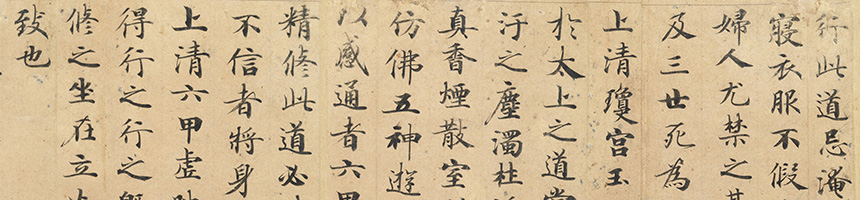 行此道忌淹
寢衣服不假
婦人尤禁之
及三世死為
上清瓊宮玉
於太上之道
汙之塵濁杜
真香煙散室
仿佛五神遊
以感通者六甲
精修此道必
不信者將身
上清六甲虛
得行之行之
修之坐在立
致也